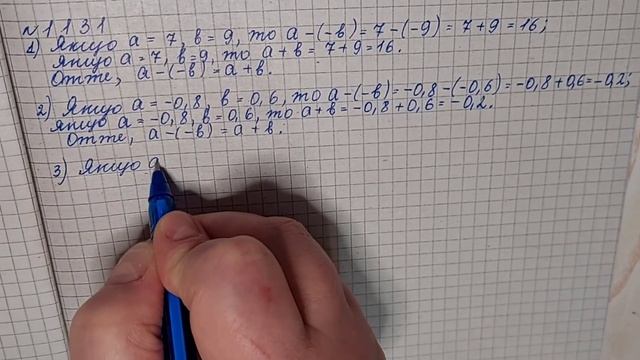 №1131
1) Якщо a = 7, в = 9, то a - (-в) = 7 - (-9) = 7 + 9 = 16;
Якщо a = 7, в = 9, то a + в = 7 + 9 = 16.
Отже, a - (-в) = a + в.
2) Якщо a = -0,8, в = 0,6, то a - (-в) = -0,8 - (-0,6) = -0,8 + 0,6 = -0,2;
якщо a = -0,8, в = 0,6, то a + в = -0,8 + 0,6 = -0,2.
Отже, a - (-в) = a + в.
3) Якщо a